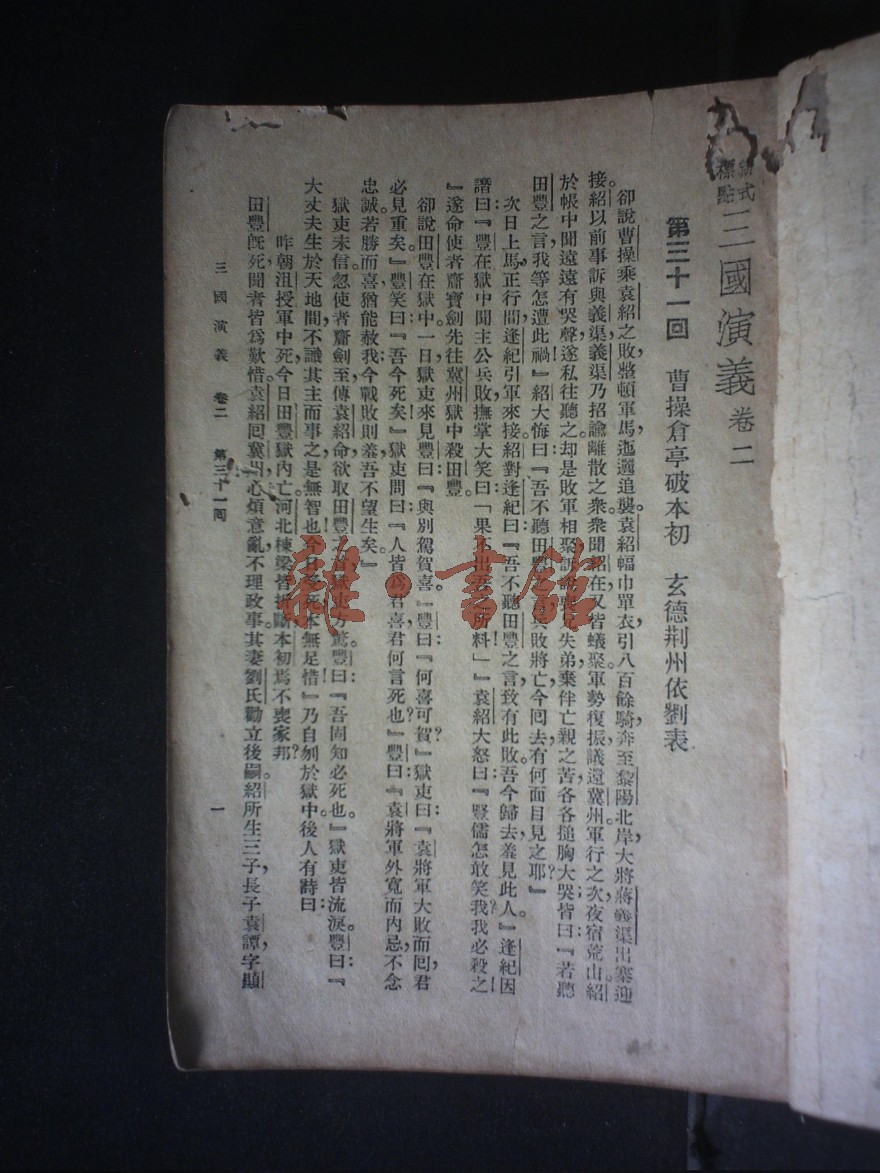 新式標點 三國演義 卷二
第三十一回 曹操倉亭破本初 玄德荆州依劉表
卻說曹操乘袁紹之敗,整頓軍馬,迤邐追襲。袁紹幅巾單衣,引八百餘騎,奔至黎陽北岸,大將蔣義渠出寨迎
接。紹以前事訴與義渠。義渠乃招諭離散之衆。衆聞紹在,又皆蟻聚。軍勢復振,議還冀州。軍行之次,夜宿荒山。紹
於帳中聞遠遠有哭聲,遂私往聽之。却是敗軍相聚,訴說喪兄失弟,棄伴亡親之苦,各各搥胸大哭;皆曰:『若聽
田豐之言,我等怎遭此禍!』紹大悔曰:『吾不聽田豐之言,兵敗將亡;今回去,有何面目見之耶?』
次日,上馬正行間,逢紀引軍來接。紹對逢紀曰:『吾不聽田豐之言,致有此敗。吾今歸去,羞見此人。』逢紀因
譖曰:『豐在獄中聞主公兵敗,撫掌大笑曰:「果不出吾之所料!」』袁紹大怒曰:『豎儒怎敢笑我?我必殺之!
』遂命使者齎寶劍先往冀州獄中殺田豐。
卻說田豐在獄中,一日,獄吏來見豐曰:『與別駕賀喜。』豐曰:『何喜可賀?』獄吏曰:『袁將軍大敗而回,君
必見重矣。』豐笑曰:『吾今死矣!』獄吏問曰:『人皆爲君喜,君何言死也?』豐曰:『袁將軍外寬而內忌,不念
忠誠。若勝而喜,猶能赦我;今戰敗則羞,吾不望生矣。』
獄吏未信。忽使者齎劍至,傳袁紹命,欲取田豐之首,獄吏方驚。豐曰:『吾固知必死也。』獄吏皆流淚。豐曰:『
大丈夫生於天地間,不識其主而事之,是無智也!今日受死,本無足惜!』乃自刎於獄中。後人有詩曰:
昨朝沮授軍中死,今日田豐獄內亡。河北棟梁皆折斷,本初焉不喪家邦?
田豐旣死,聞者皆爲歎惜。袁紹回冀州,心煩意亂,不理政事。其妻劉氏勸立後嗣。紹所生三子,長子袁譚,字顯
三國演義 卷二 第三十一回 一
雜·書館